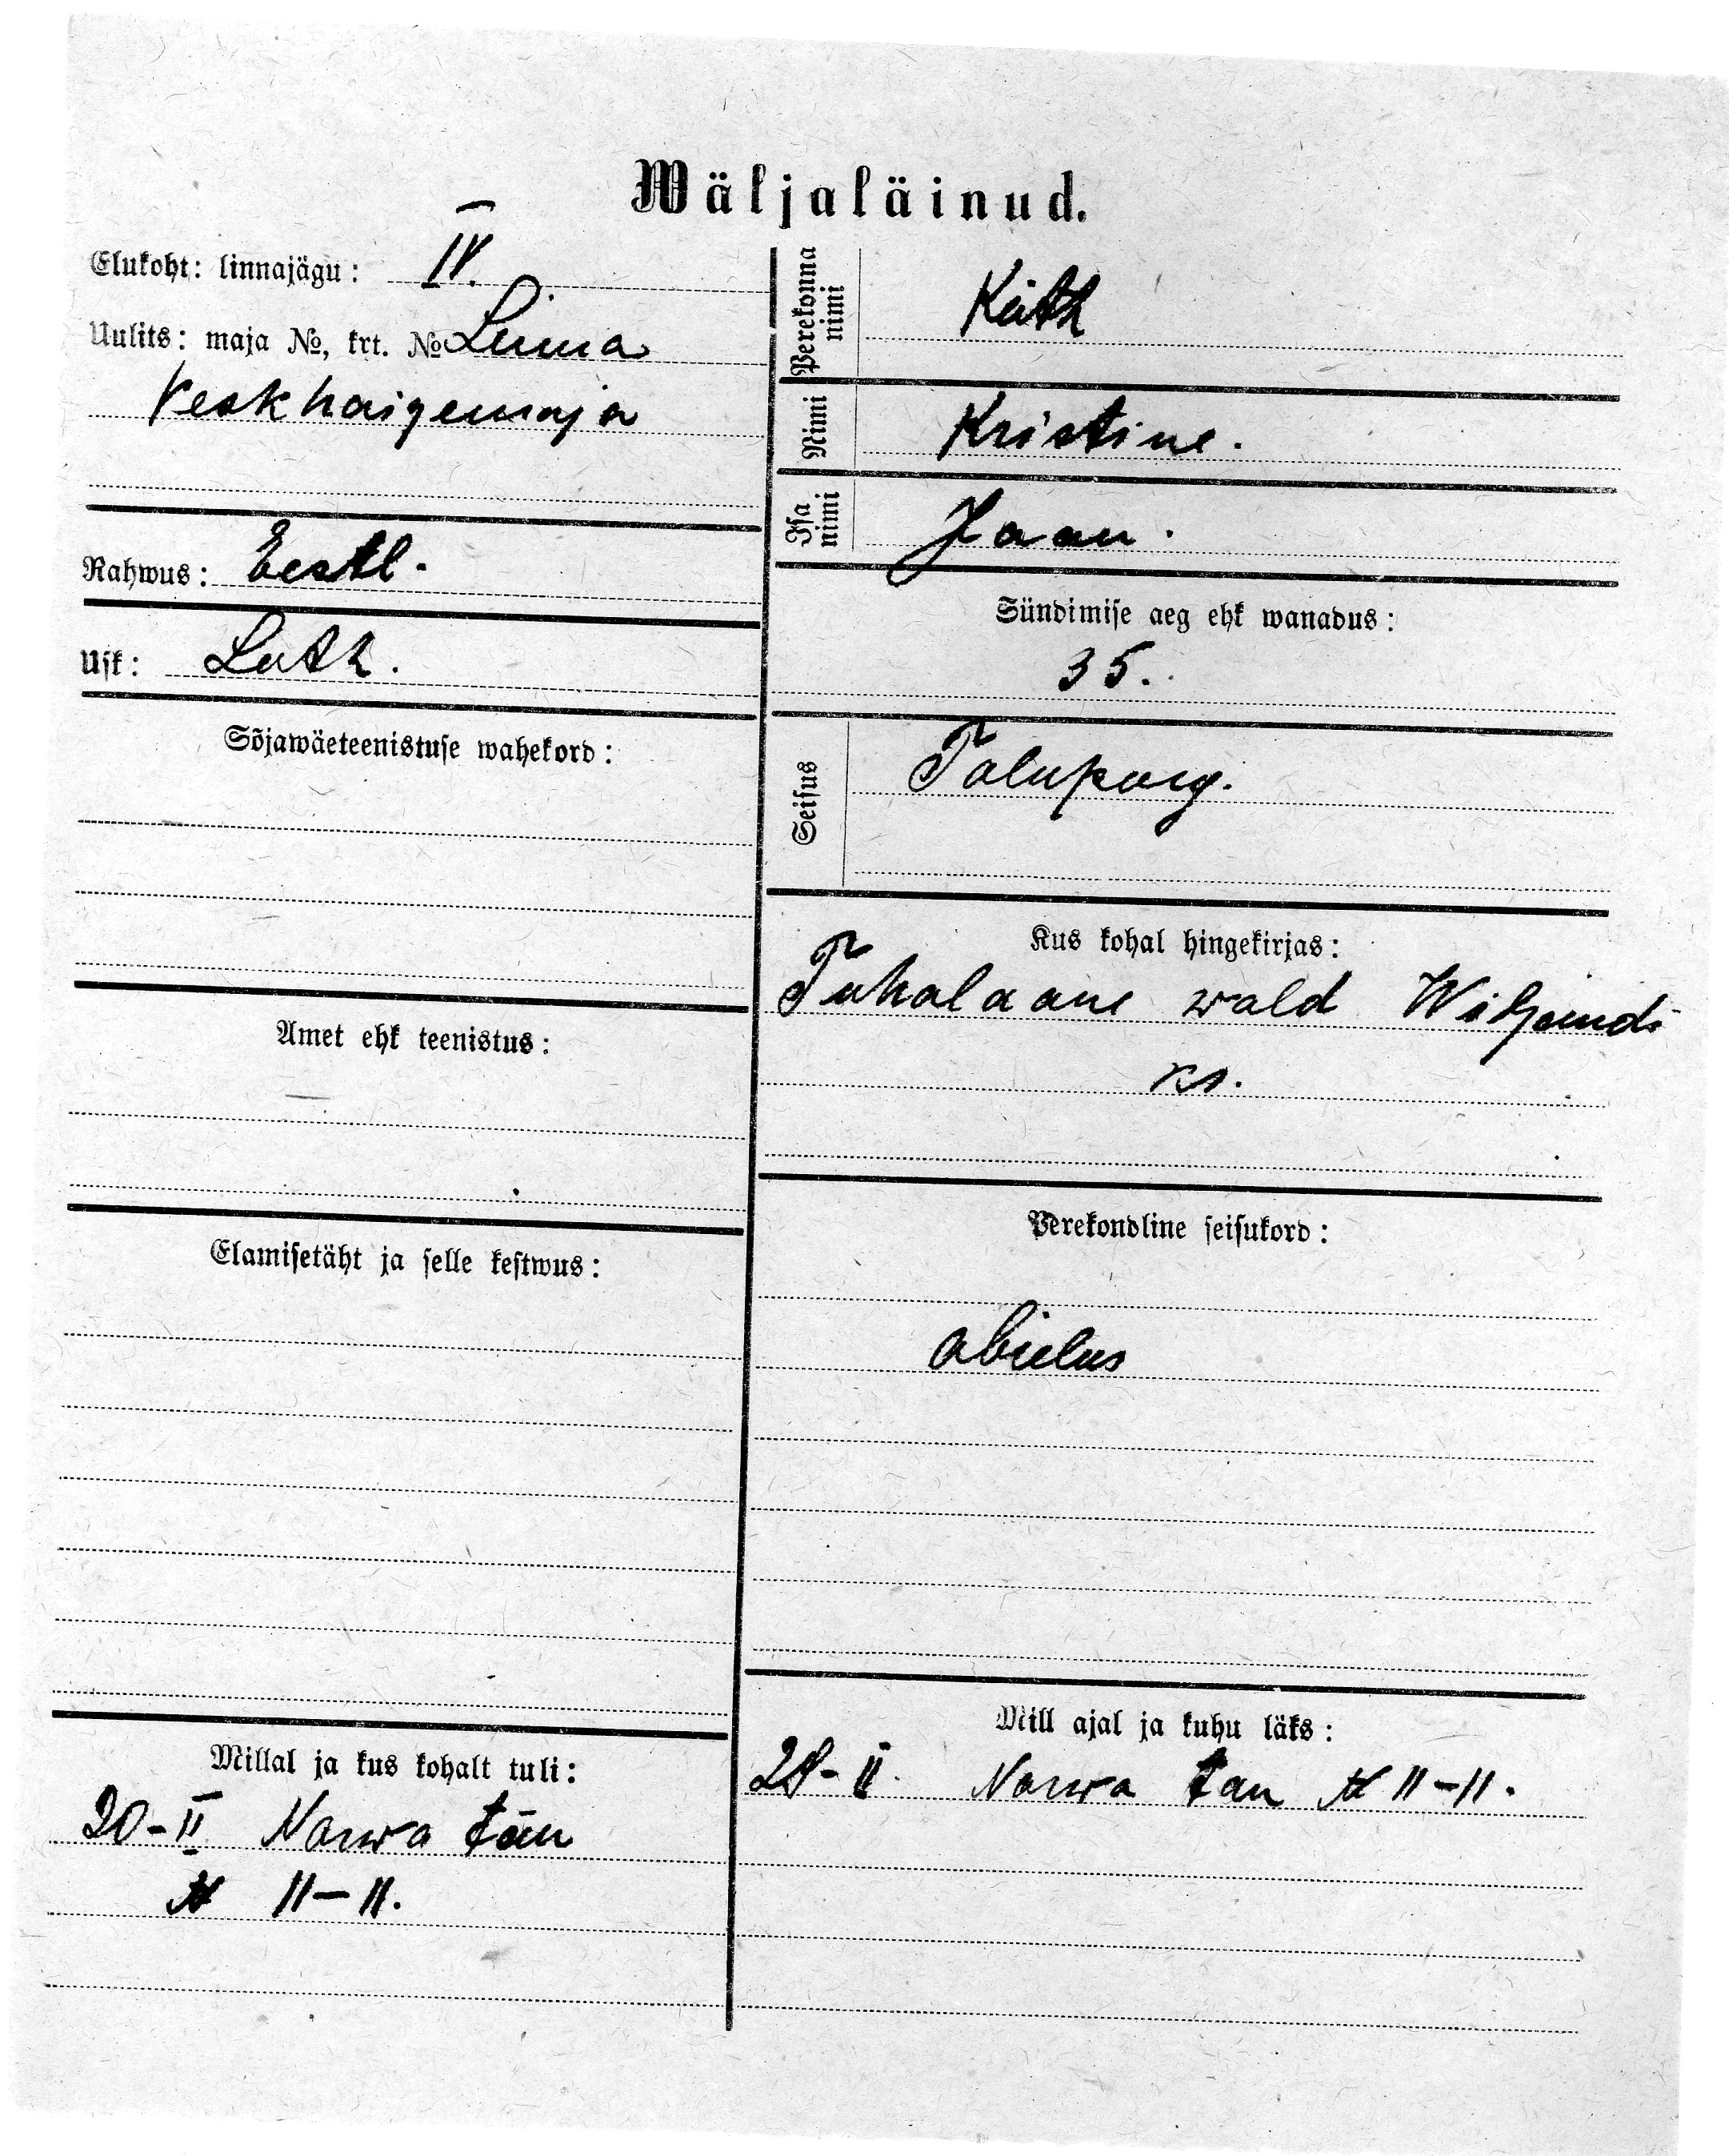 Wäljaläinud.
Elukoht: linnajägu: IV.
Uulits: maja №, krt. № Linna
Keskhaigemaja
Rahwus: Eestl.
Usk: Luth.
Sõjawäeteenistuse wahekord:
Amet ehk teenistus:
Elamisetäht ja selle kestwus:
Millal ja kus kohalt tuli:
20-II Narwa tän
№ 11-11.
Perekonna nimi
Nimi Kristine.
Isa nimi Jaan.
Sündimise aeg ehk wanadus:
35.
Seisus Talupoeg.
Kus kohal hingekirjas:
Tuhalaane wald Wiljandi
kr.
Perekondline seisukord:
abielus
Mill ajal ja kuhu läks:
28-II. Narwa tän № 11-11.